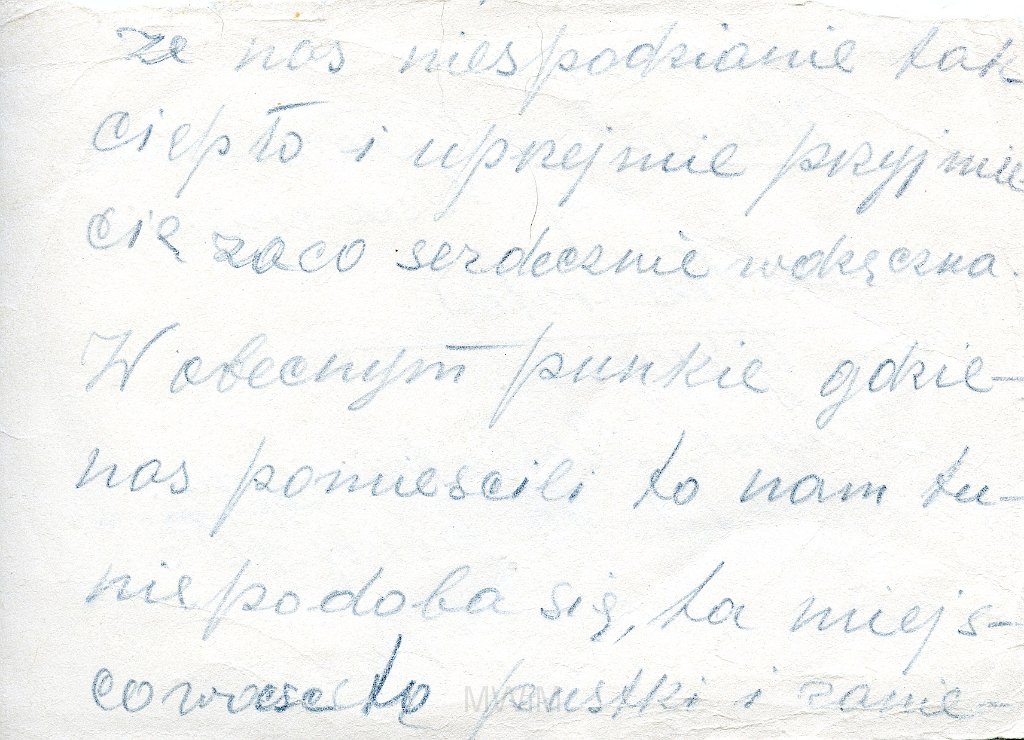 że nas niespodzianie tak
ciepło i uprzejmie przyjmie
cie zaco serdecznie wdzęczna.
W obecnym punkie gdzie-
nas pomiescili to nam tu-
niepodoba się, ta miejs-
cowosc to pustki i zanie-